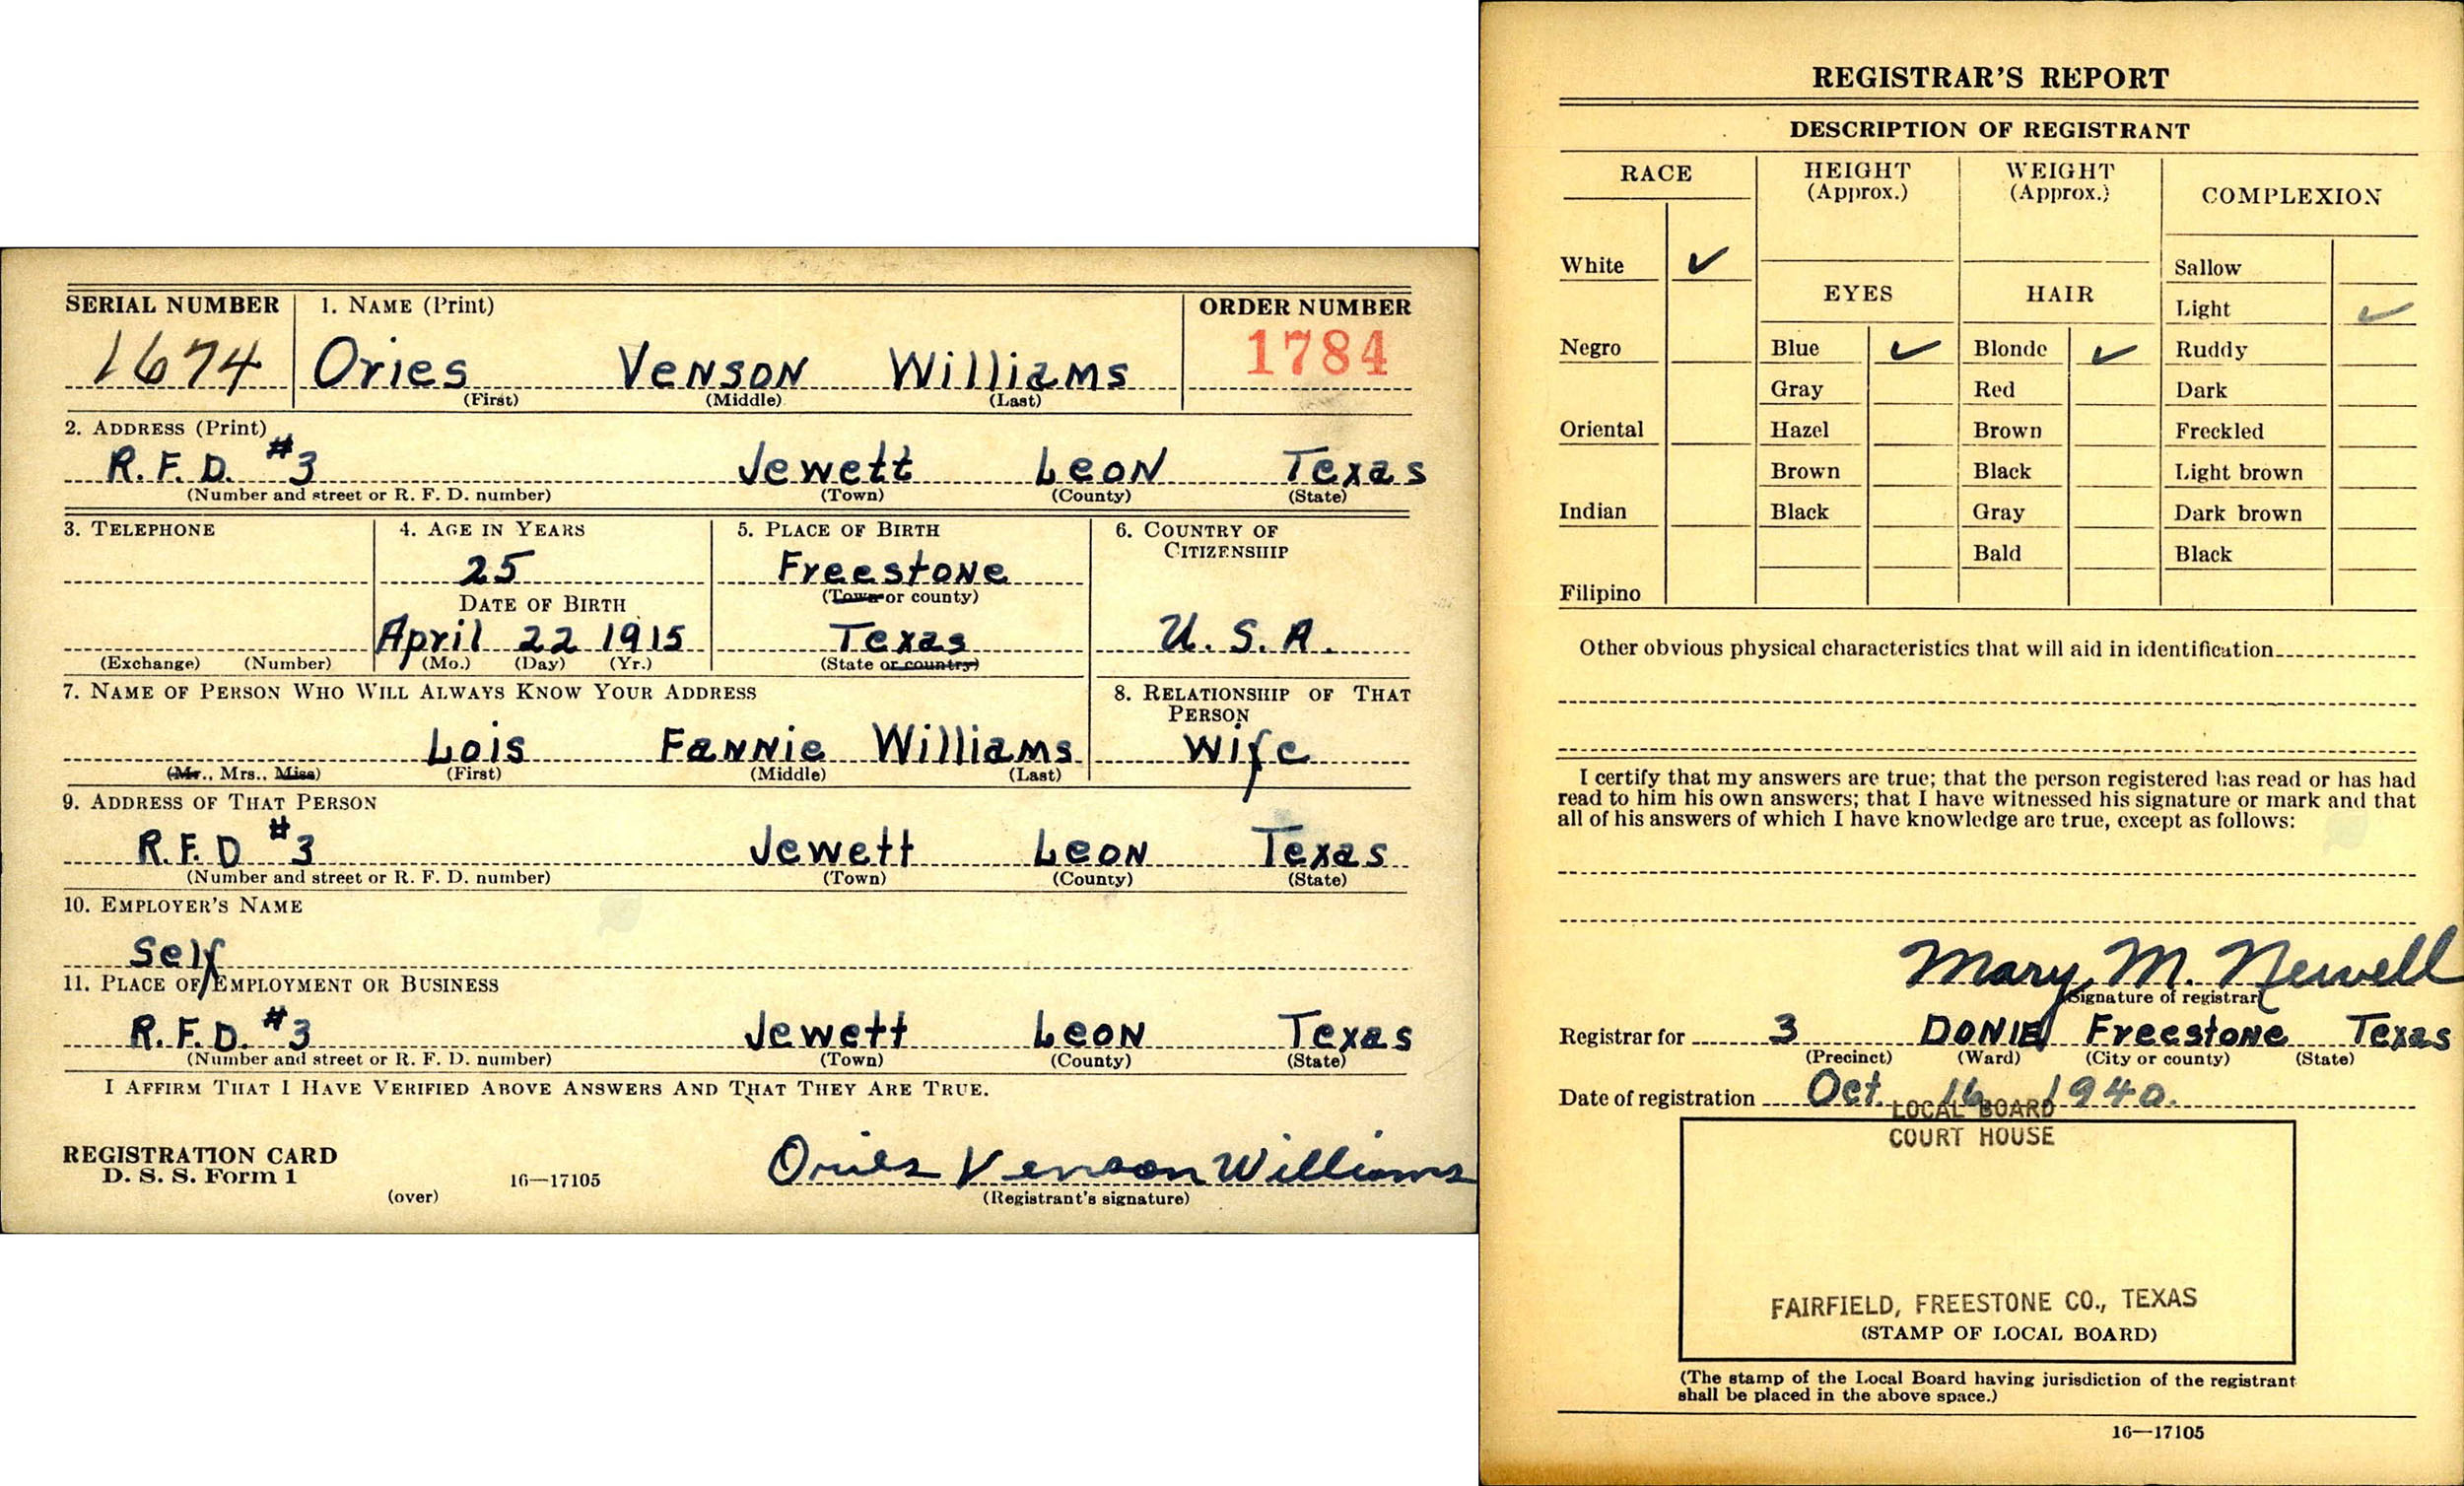 SERIAL NUMBER 1. NAME (Print) ORDER NUMBER
1674 Ories Venson Williams 1784
(First) (Middle) (Last)
2. ADDRESS (Print)
R.F.D. #3 Jewett Leon Texas
(Number and street or R. F. D. number) (Town) (County) (State)
3. TELEPHONE 4. AGE IN YEARS 5. PLACE OF BIRTH 6. COUNTRY OF CITIZENSHIP
25 Freestone
DATE OF BIRTH (Town or county)
April 22 1915 Texas U.S.A.
(Exchange) (Number) (Mo.) (Day) (Yr.) (State or country)
7. NAME OF PERSON WHO WILL ALWAYS KNOW YOUR ADDRESS 8. RELATIONSHIP OF THAT PERSON
Lois Fannie Williams Wife
(Mr., Mrs., Miss) (First) (Middle) (Last)
9. ADDRESS OF THAT PERSON
R.F.D #3 Jewett Leon Texas
(Number and street or R. F. D. number) (Town) (County) (State)
10. EMPLOYER'S NAME
Self
11. PLACE OF EMPLOYMENT OR BUSINESS
R.F.D. #3 Jewett Leon Texas
(Number and street or R. F. D. number) (Town) (County) (State)
I AFFIRM THAT I HAVE VERIFIED ABOVE ANSWERS AND THAT THEY ARE TRUE.
REGISTRATION CARD
D. S. S. Form 1 16—17105 Ories Venson Williams
(over) (Registrant's signature)
REGISTRAR'S REPORT
DESCRIPTION OF REGISTRANT
RACE HEIGHT (Approx.) WEIGHT (Approx.) COMPLEXION
White ✓ Sallow
EYES HAIR Light ✓
Negro Blue ✓ Blonde ✓ Ruddy
Gray Red Dark
Oriental Hazel Brown Freckled
Brown Black Light brown
Indian Black Gray Dark brown
Bald Black
Filipino
Other obvious physical characteristics that will aid in identification
I certify that my answers are true; that the person registered has read or has had
read to him his own answers; that I have witnessed his signature or mark and that
all of his answers of which I have knowledge are true, except as follows:
Mary M. Newell
(Signature of registrar)
Registrar for 3 DONIE Freestone Texas
(Precinct) (Ward) (City or county) (State)
Date of registration Oct. 16 1940.
LOCAL BOARD
COURT HOUSE
FAIRFIELD, FREESTONE CO., TEXAS
(STAMP OF LOCAL BOARD)
(The stamp of the Local Board having jurisdiction of the registrant
shall be placed in the above space.)
16—17105